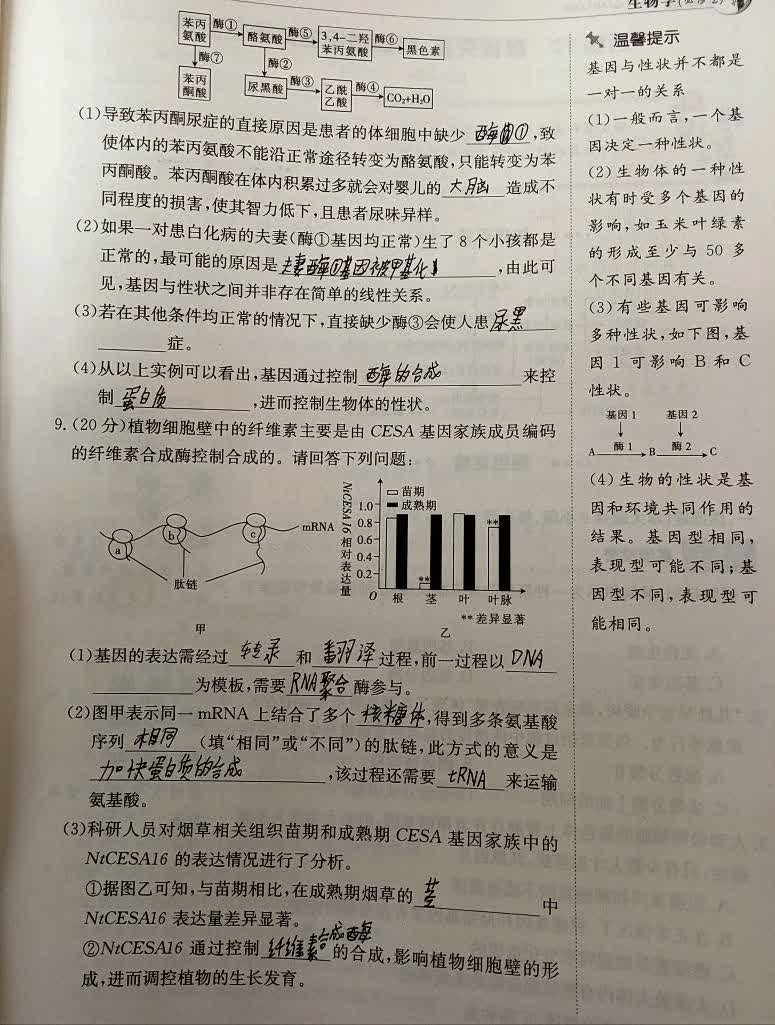 生物学(必修2)
苯丙氨酸 酶① 酪氨酸 酶⑤ 3,4-二羟苯丙氨酸 酶⑥ 黑色素
酶⑦ 酶②
苯丙酮酸 尿黑酸 酶③ 乙酰乙酸 酶④ CO₂+H₂O
(1)导致苯丙酮尿症的直接原因是患者的体细胞中缺少 酶①,致
使体内的苯丙氨酸不能沿正常途径转变为酪氨酸,只能转变为苯
丙酮酸。苯丙酮酸在体内积累过多就会对婴儿的 大脑 造成不
同程度的损害,使其智力低下,且患者尿味异样。
(2)如果一对患白化病的夫妻(酶①基因均正常)生了8个小孩都是
正常的,最可能的原因是 夫妻酶①基因被甲基化,由此可
见,基因与性状之间并非存在简单的线性关系。
(3)若在其他条件均正常的情况下,直接缺少酶③会使人患 尿黑
症。
(4)从以上实例可以看出,基因通过控制 酶的合成 来控
制 蛋白质,进而控制生物体的性状。
9.(20分)植物细胞壁中的纤维素主要是由CESA基因家族成员编码
的纤维素合成酶控制合成的。请回答下列问题:
a b c mRNA
肽链
甲
NtCESA16相对表达量
苗期
成熟期
1.0
0.8
0.6
0.4
0.2
O
** **
根 茎 叶 叶脉
**差异显著
乙
(1)基因的表达需经过 转录 和 翻译 过程,前一过程以 DNA
为模板,需要 RNA聚合 酶参与。
(2)图甲表示同一mRNA上结合了多个 核糖体,得到多条氨基酸
序列 相同 (填“相同”或“不同”)的肽链,此方式的意义是
加快蛋白质的合成,该过程还需要 tRNA 来运输
氨基酸。
(3)科研人员对烟草相关组织苗期和成熟期CESA基因家族中的
NtCESA16的表达情况进行了分析。
①据图乙可知,与苗期相比,在成熟期烟草的 茎 中
NtCESA16表达量差异显著。
②NtCESA16通过控制 纤维素合成酶 的合成,影响植物细胞壁的形
成,进而调控植物的生长发育。
温馨提示
基因与性状并不都是
一对一的关系
(1)一般而言,一个基
因决定一种性状。
(2)生物体的一种性
状有时受多个基因的
影响,如玉米叶绿素
的形成至少与50多
个不同基因有关。
(3)有些基因可影响
多种性状,如下图,基
因1可影响B和C
性状。
基因1 基因2
A 酶1 B 酶2 C
(4)生物的性状是基
因和环境共同作用的
结果。基因型相同,
表现型可能不同;基
因型不同,表现型可
能相同。